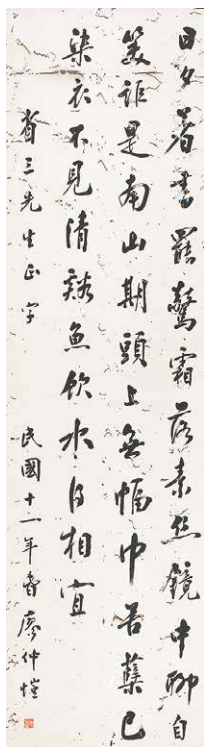 日夕著書罷驚霜落素絲鏡中聊自
笑詎是南山期頭上無幅巾苦蘗已
染衣不見清谿魚飲水自相宜
省三先生正字 民國十一年春 廖仲愷